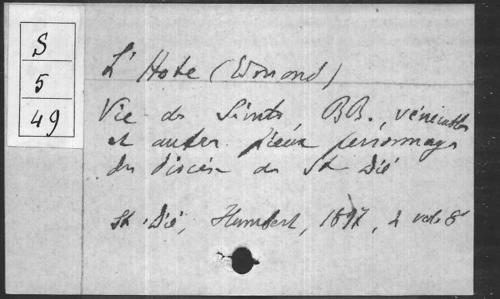 S
5
49
L'Hote (Edmond)
Vie des Saints, BB., vénérables
et autres pieux personnages
du diocèse de St Dié
St Dié, Humbert, 1897, 2 vols 8°